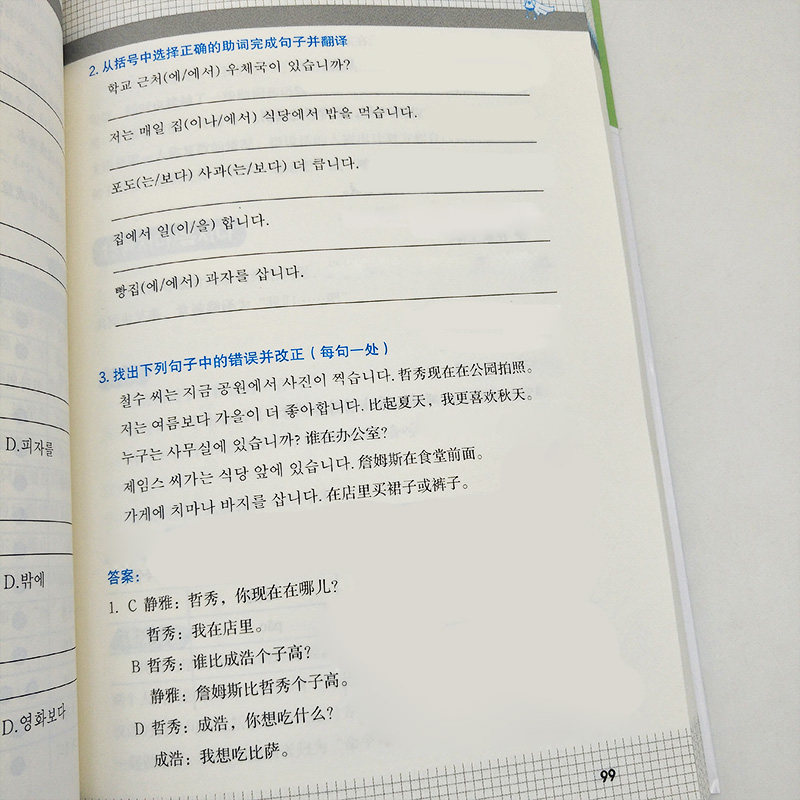 2. 从括号中选择正确的助词完成句子并翻译
학교 근처(에/에서) 우체국이 있습니까?
저는 매일 집(이나/에서) 식당에서 밥을 먹습니다.
포도(는/보다) 사과(는/보다) 더 큽니다.
집에서 일(이/을) 합니다.
빵집(에/에서) 과자를 삽니다.
3. 找出下列句子中的错误并改正（每句一处）
철수 씨는 지금 공원에서 사진이 찍습니다. 哲秀现在在公园拍照。
저는 여름보다 가을이 더 좋아합니다. 比起夏天，我更喜欢秋天。
누구는 사무실에 있습니까? 谁在办公室?
제임스 씨가는 식당 앞에 있습니다. 詹姆斯在食堂前面。
가게에 치마나 바지를 삽니다. 在店里买裙子或裤子。
答案：
1. C 静雅：哲秀，你现在在哪儿?
哲秀：我在店里。
B 哲秀：谁比成浩个子高?
静雅：詹姆斯比哲秀个子高。
D 哲秀：成浩，你想吃什么?
成浩：我想吃比萨。
99
D.피자를
D.밖에
D.영화보다